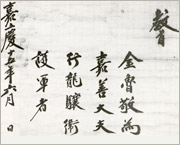 教旨
金魯敬為
嘉善大夫
行龍驤衛
護軍者
嘉慶十五年六月 日